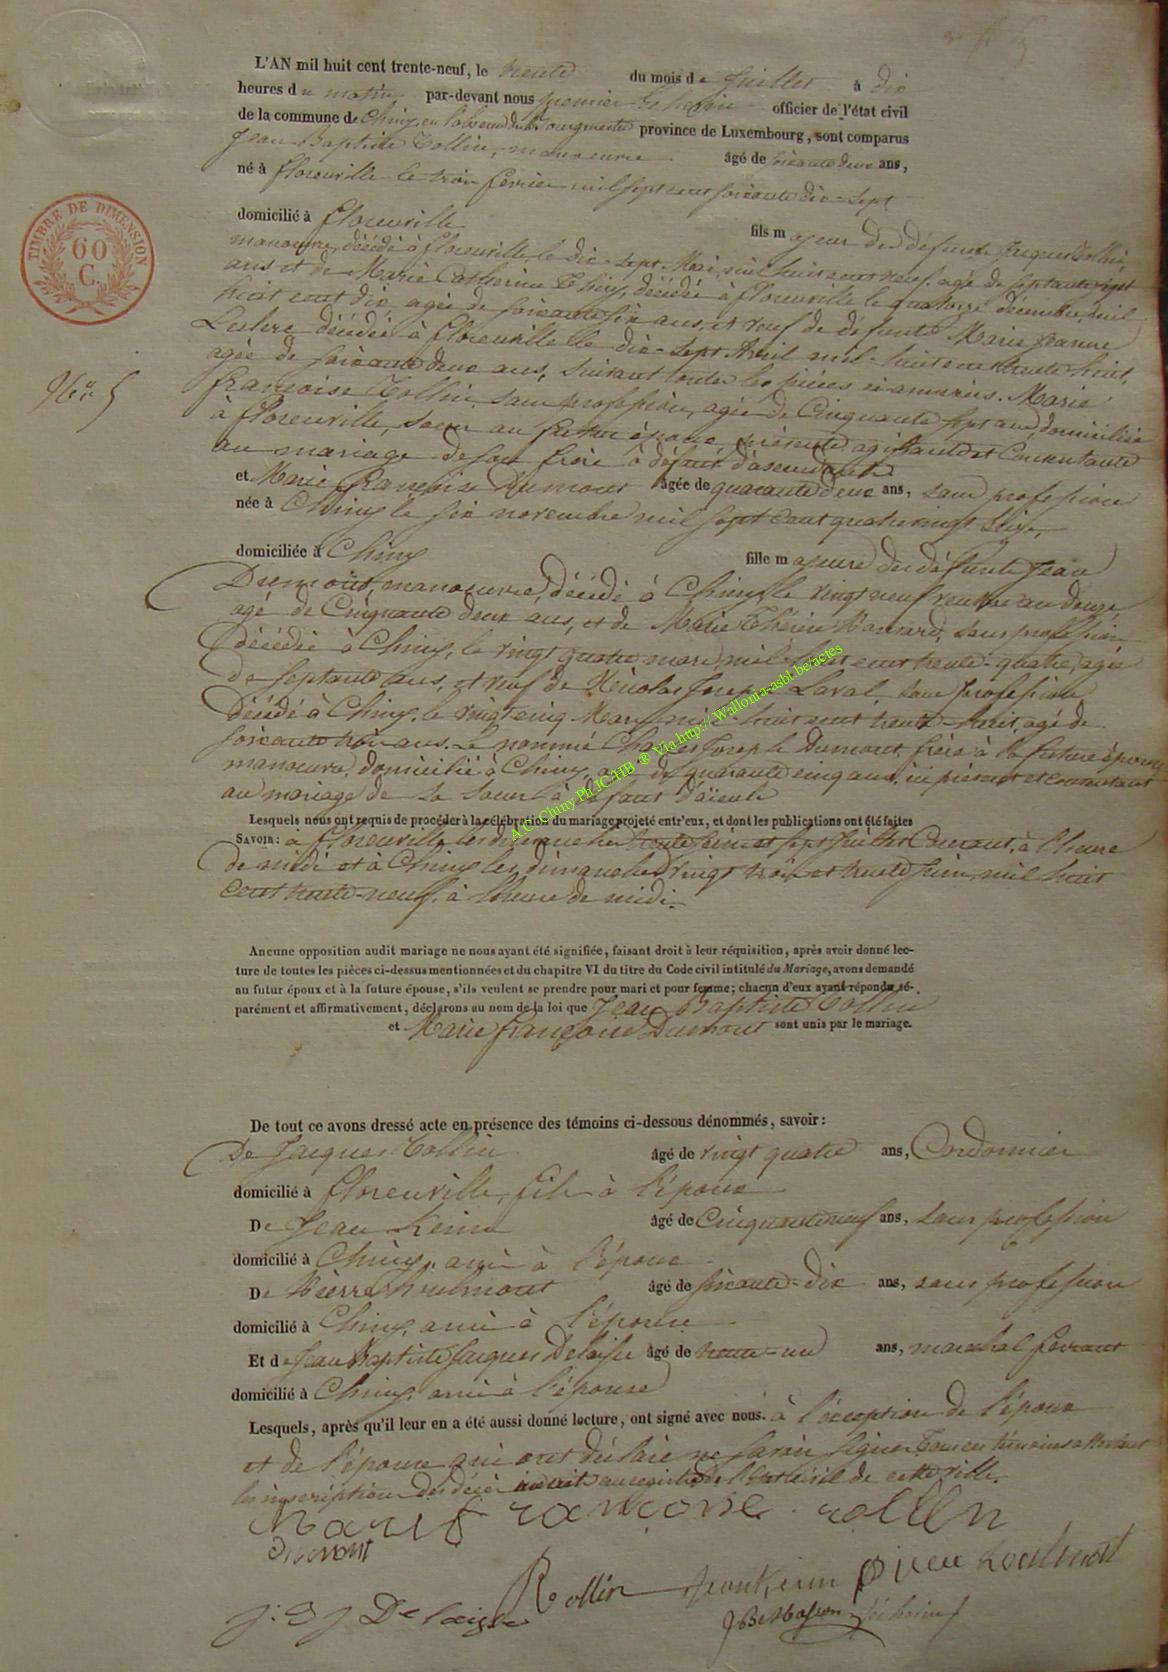 L'AN mil huit cent trente-neuf, le trente du mois de Juillet à dix
heures du matin par-devant nous premier Echevin officier de l'état civil
de la commune de Chiny, en l'absence du Bourgmestre province de Luxembourg, sont comparus
Jean Baptiste Collin, manœuvre âgé de soixante deux ans,
né à florenville le trois fevrier mil sept cent soixante dix-sept
domicilié à florenville fils majeur des défunts Jacques Collin,
manœuvre, décédé à florenville le dix-sept Mai mil huit cent neuf, agé de septante sept
ans et de Marie Catherine Thiry, décédée à florenville le quatorze décembre mil
huit cent dix agée de soixante six ans, et veuf de défunte Marie Jeanne
Leclere décédée à florenville le dix-sept Avril mil-huit cent trente-huit,
agée de soixante deux ans, suivant toutes les pièces ci annexées. Marie
françoise Collin sans profession, agée de Cinquante sept ans, domiciliée
à florenville, sœur au futur époux, présente agissante et Consentante
au mariage de son frère à défaut d'ascendants
et Marie françoise Dumont âgée de quarante deux ans, sans profession
née à Chiny le six novembre mil sept cent quatre vingt seize,
domiciliée à Chiny fille majeure des défunts Jean
Dumont, manœuvre, décédé à Chiny, le vingt neuf ventose an douze
agé de Cinquante deux ans, et de Marie Thérèse Mansard, sans profession
décédée à Chiny, le vingt quatre mars mil-huit cent trente-quatre, agée
de septante ans, et veuf de Nicolas Joseph Laval sans profession
décédé à Chiny, le vingt cinq Mars mil huit cent trente-huit, agé de
soixante trois ans. Le nommé Charles Joseph Dumont, frère à la future épouse
manœuvre, domicilié à Chiny, agé de quarante cinq ans, ici présent et consentant
au mariage de sa sœur à défaut d'aïeuls
Lesquels nous ont requis de procéder à la célébration du mariage projeté entr'eux, et dont les publications ont été faites
SAVOIR: à florenville les dimanches trente Juin et sept Juillet Courant, à l'heure
de midi et à Chiny les dimanches vingt trois et trente Juin, mil huit
Cent trente-neuf, à l'heure de midi.
Aucune opposition audit mariage ne nous ayant été signifiée, faisant droit à leur réquisition, après avoir donné lec-
ture de toutes les pièces ci-dessus mentionnées et du chapitre VI du titre du Code civil intitulé du Mariage, avons demandé
au futur époux et à la future épouse, s'ils veulent se prendre pour mari et pour femme; chacun d'eux ayant répondu sé-
parément et affirmativement, déclarons au nom de la loi que Jean Baptiste Collin
et Marie françoise Dumont sont unis par le mariage.
De tout ce avons dressé acte en présence des témoins ci-dessous dénommés, savoir:
De Jacques Collin âgé de vingt quatre ans, Cordonnier
domicilié à florenville, fils à l'époux
De Jean âgé de Cinquante neuf ans, sans profession
domicilié à Chiny, ami à l'époux
De Pierre âgé de soixante-dix ans, sans profession
domicilié à Chiny, ami à l'épouse
Et de Jean Baptiste Jacques Delaisse âgé de trente-un ans, marechal ferrant
domicilié à Chiny, ami à l'épouse
Lesquels, après qu'il leur en a été aussi donné lecture, ont signé avec nous. à l'exception de l'époux
et de l'épouse qui ont déclaré ne savoir signer
les inscriptions des décès au registre de l'Etat Civil de cette ville.
Marie francoise Collin
Dumont
J: B J Delaisse Collin Pierre
TIMBRE DE DIMENSION
60
C.
N.º 5
A.C. Chiny Ph JC.HB ® Via http://Wallonia-asbl.be/actes